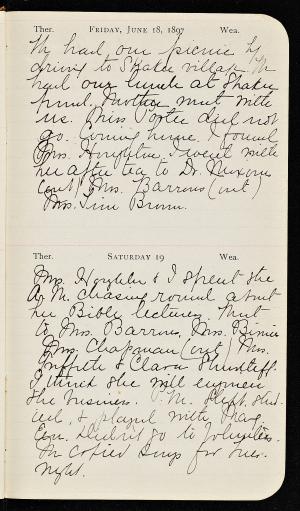 Ther. FRIDAY, JUNE 18, 1897 Wea.
We had our picnic by
driving to Shaker village. We
had our lunch at Shaker
pond. Mother went with
us. Miss Porter did not
go. Coming home, I found
Mrs. Houghton. I went with
her after tea to Dr. Nixons
(out) Mrs. Barrons (out)
Mrs. Tim Brown.
Ther. SATURDAY 19 Wea.
Mrs. Houghton & I spent the
A.M. chasing round about
her Bible lectures. Went
to Mrs. Barrons, Mrs.
Mrs. Chapman (out) Mrs.
Griffith & Clara
I think she will
the business. P.M. Slept, stud-
ied, & played with
Eve. Didn't go to
We copied songs for
night.